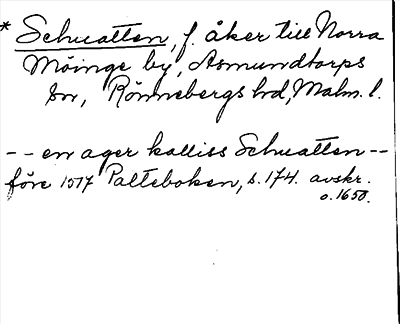 * Schuatten, f. åker till Norra
Möinge by, Asmundtorps
sn, Rönnebergs hd, Malm. l.
- - en ager kalliss Schuatten - -
före 1517 Palteboken, s. 174. avskr.
o. 1650.